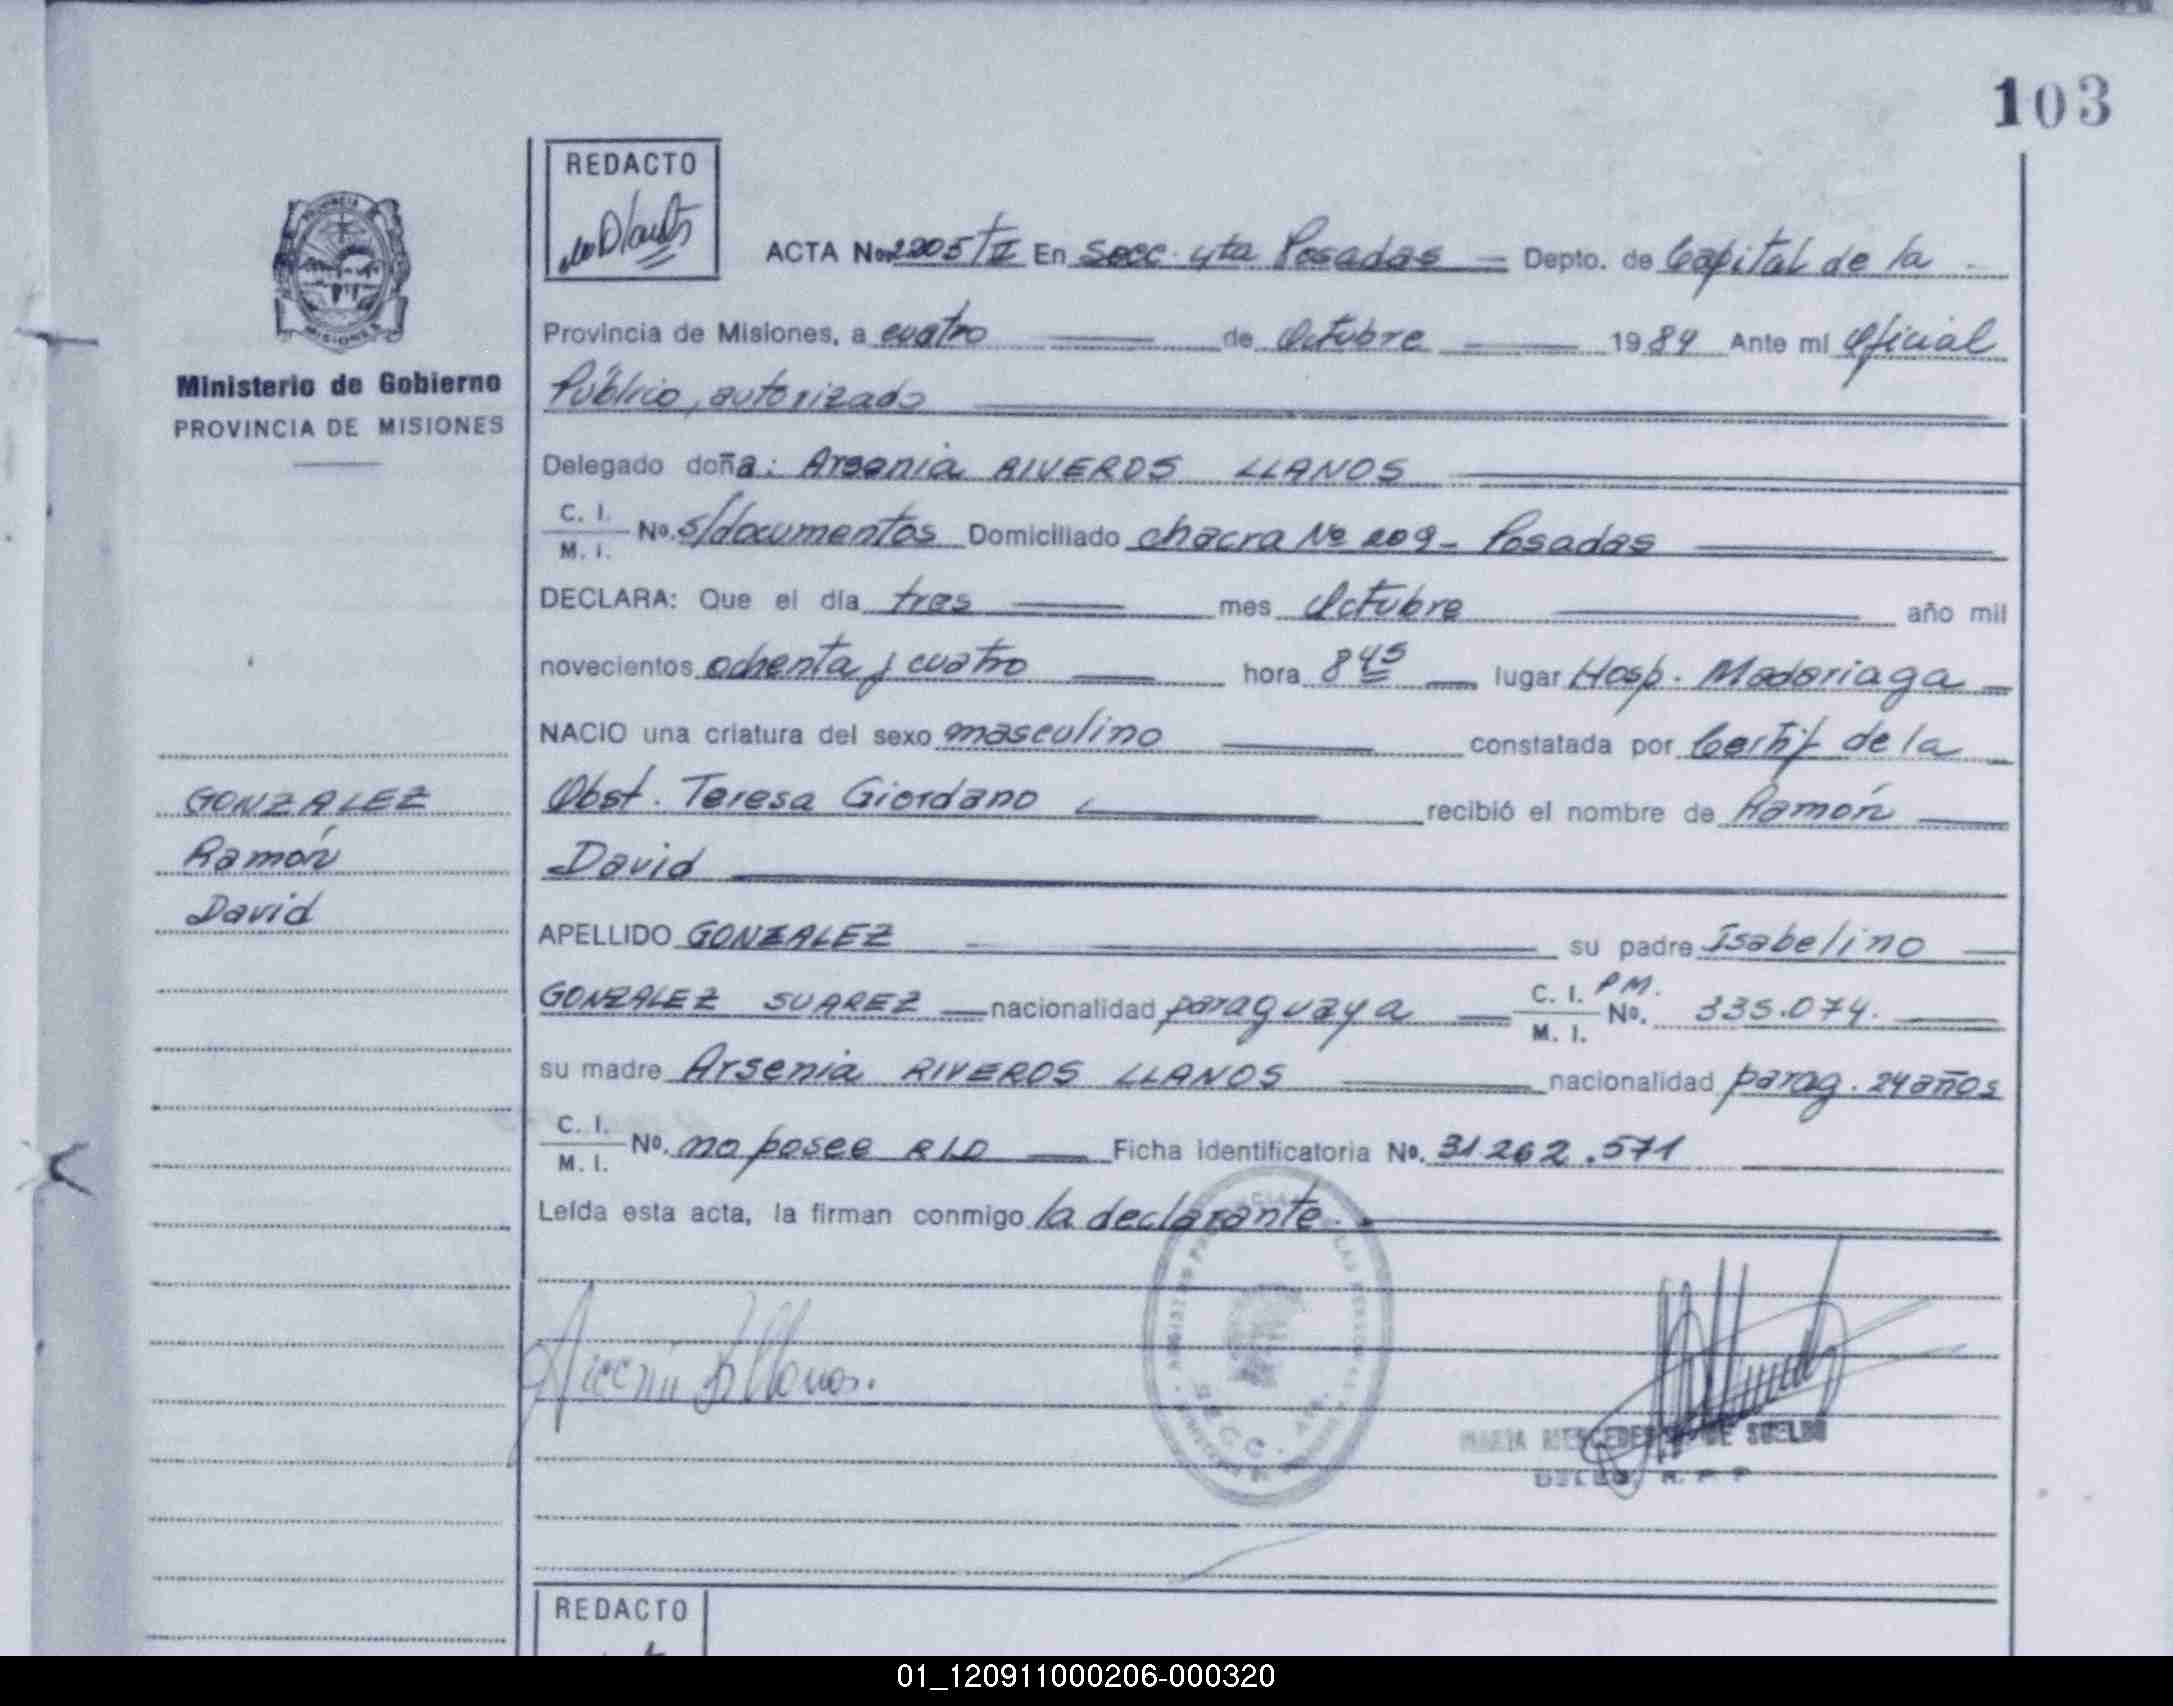 103
REDACTO
ACTA No. 2205/TVI En Secc. 4ta Posadas Depto. de Capital de la
Provincia de Misiones, a cuatro de Octubre 1984 Ante mi Oficial
Público, autorizado
Ministerio de Gobierno
PROVINCIA DE MISIONES
Delegado doña: Arsenia RIVEROS LLANOS
C. I.
M. I. No. s/documentos Domiciliado chacra No 209- Posadas
DECLARA: Que el día tres mes Octubre año mil
novecientos ochenta y cuatro hora 8 45 lugar Hosp. Madariaga
NACIO una criatura del sexo masculino constatada por Certif de la
Obst. Teresa Giordano recibió el nombre de Ramón
David
GONZALEZ
Ramón
David
APELLIDO GONZALEZ su padre Isabelino
GONZALEZ SUAREZ nacionalidad paraguaya C. I. P M.
M. I. No. 335.074.
su madre Arsenia RIVEROS LLANOS nacionalidad parag. 24 años
C. I.
M. I. No. no posee RLD Ficha identificatoria No. 31.262.571
Leída esta acta, la firman conmigo la declarante.
SECC. 4TA.
MARIA MERCEDES DE SUELDO
REDACTO
01_120911000206-000320